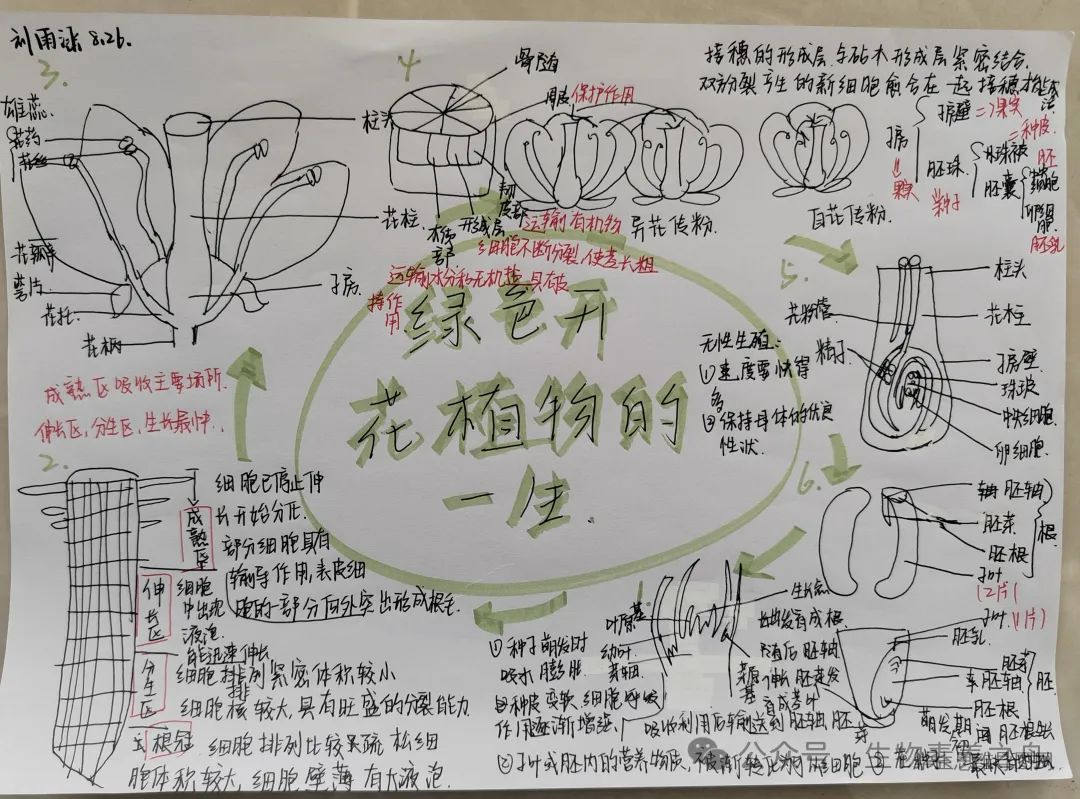 刘雨 8.26.
3.
雄蕊
花药
花丝
花瓣
萼片
花托
花柄
柱头
花柱
子房
4
骨随
周皮 保护作用
韧皮部
形成层
木质部
运输有机物
细胞不断分裂,使茎长粗
运输水分和无机盐,具有支
持作用
异花传粉.
自花传粉.
接穗的形成层与砧木形成层紧密结合.
双方分裂产生的新细胞愈合在一起接穗才能成活
子房
果实
子房壁 => 果实
胚珠
种子
珠被 = 种皮
胚囊
胚
卵细胞
胚乳
5.
柱头
花粉管
花柱
精子
子房壁
珠被
中央细胞
卵细胞.
无性生殖:
①速度要快得
多
②保持母体的优良
性状.
绿色开
花植物的
一生.
成熟区吸收主要场所.
伸长区,分生区,生长最快.
2.
成熟区
细胞已停止伸
长开始分化.
部分细胞具有
输导作用,表皮细
胞的一部分向外突出形成根毛.
伸长区
细胞
中出现
液泡
能迅速伸长
分生区
细胞排列紧密体积较小
细胞核较大,具有旺盛的分裂能力
根冠
细胞排列比较疏松细
胞体积较大,细胞壁薄有大液泡.
6.
胚轴
胚芽
胚根
子叶
(2片)
子叶(1片)
胚乳
胚芽
胚轴
胚根
胚
1.
生长点
叶原基
幼叶
芽轴
芽原基
①种子萌发时
吸水膨胀
种皮变软,细胞呼吸
作用逐渐增强.
②子叶或胚内的营养物质,
吸收利用后输送到胚轴胚芽
发育成根
随后胚轴
伸长 胚芽发
育成茎叶
公众号·生物素养方舟